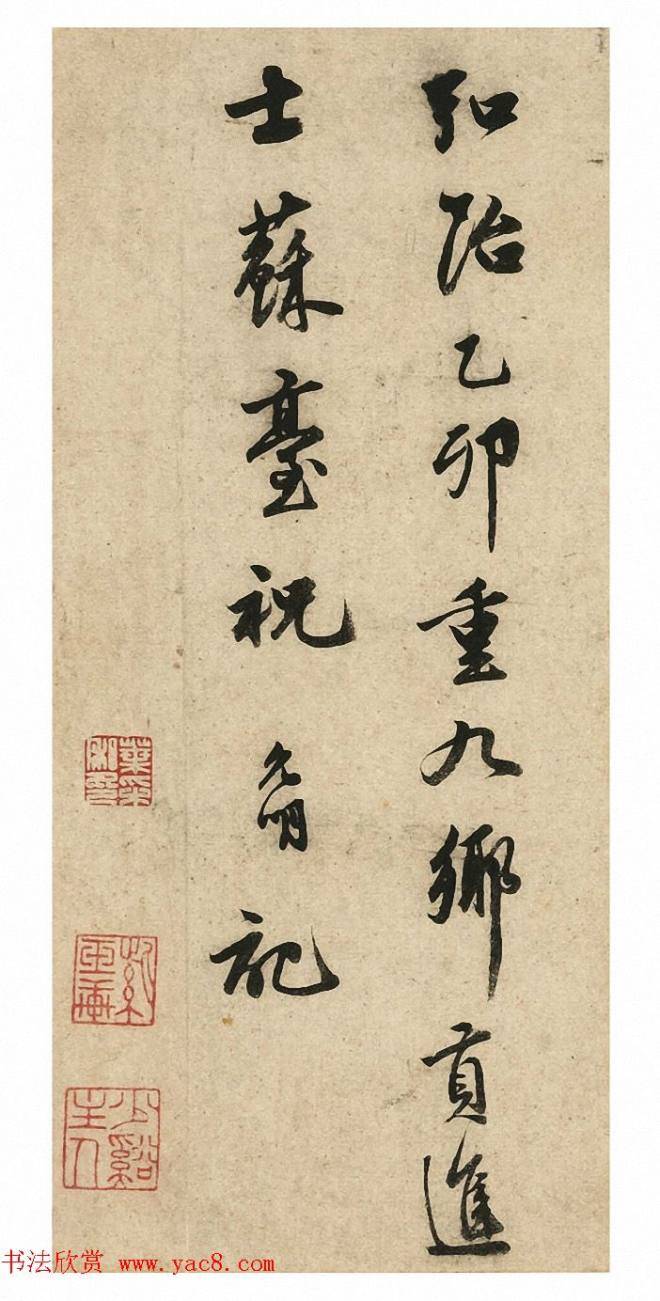 弘治乙卯重九鄉貢進
士蘇臺祝允明記
少谿主人
书法欣赏 www.yac8.com